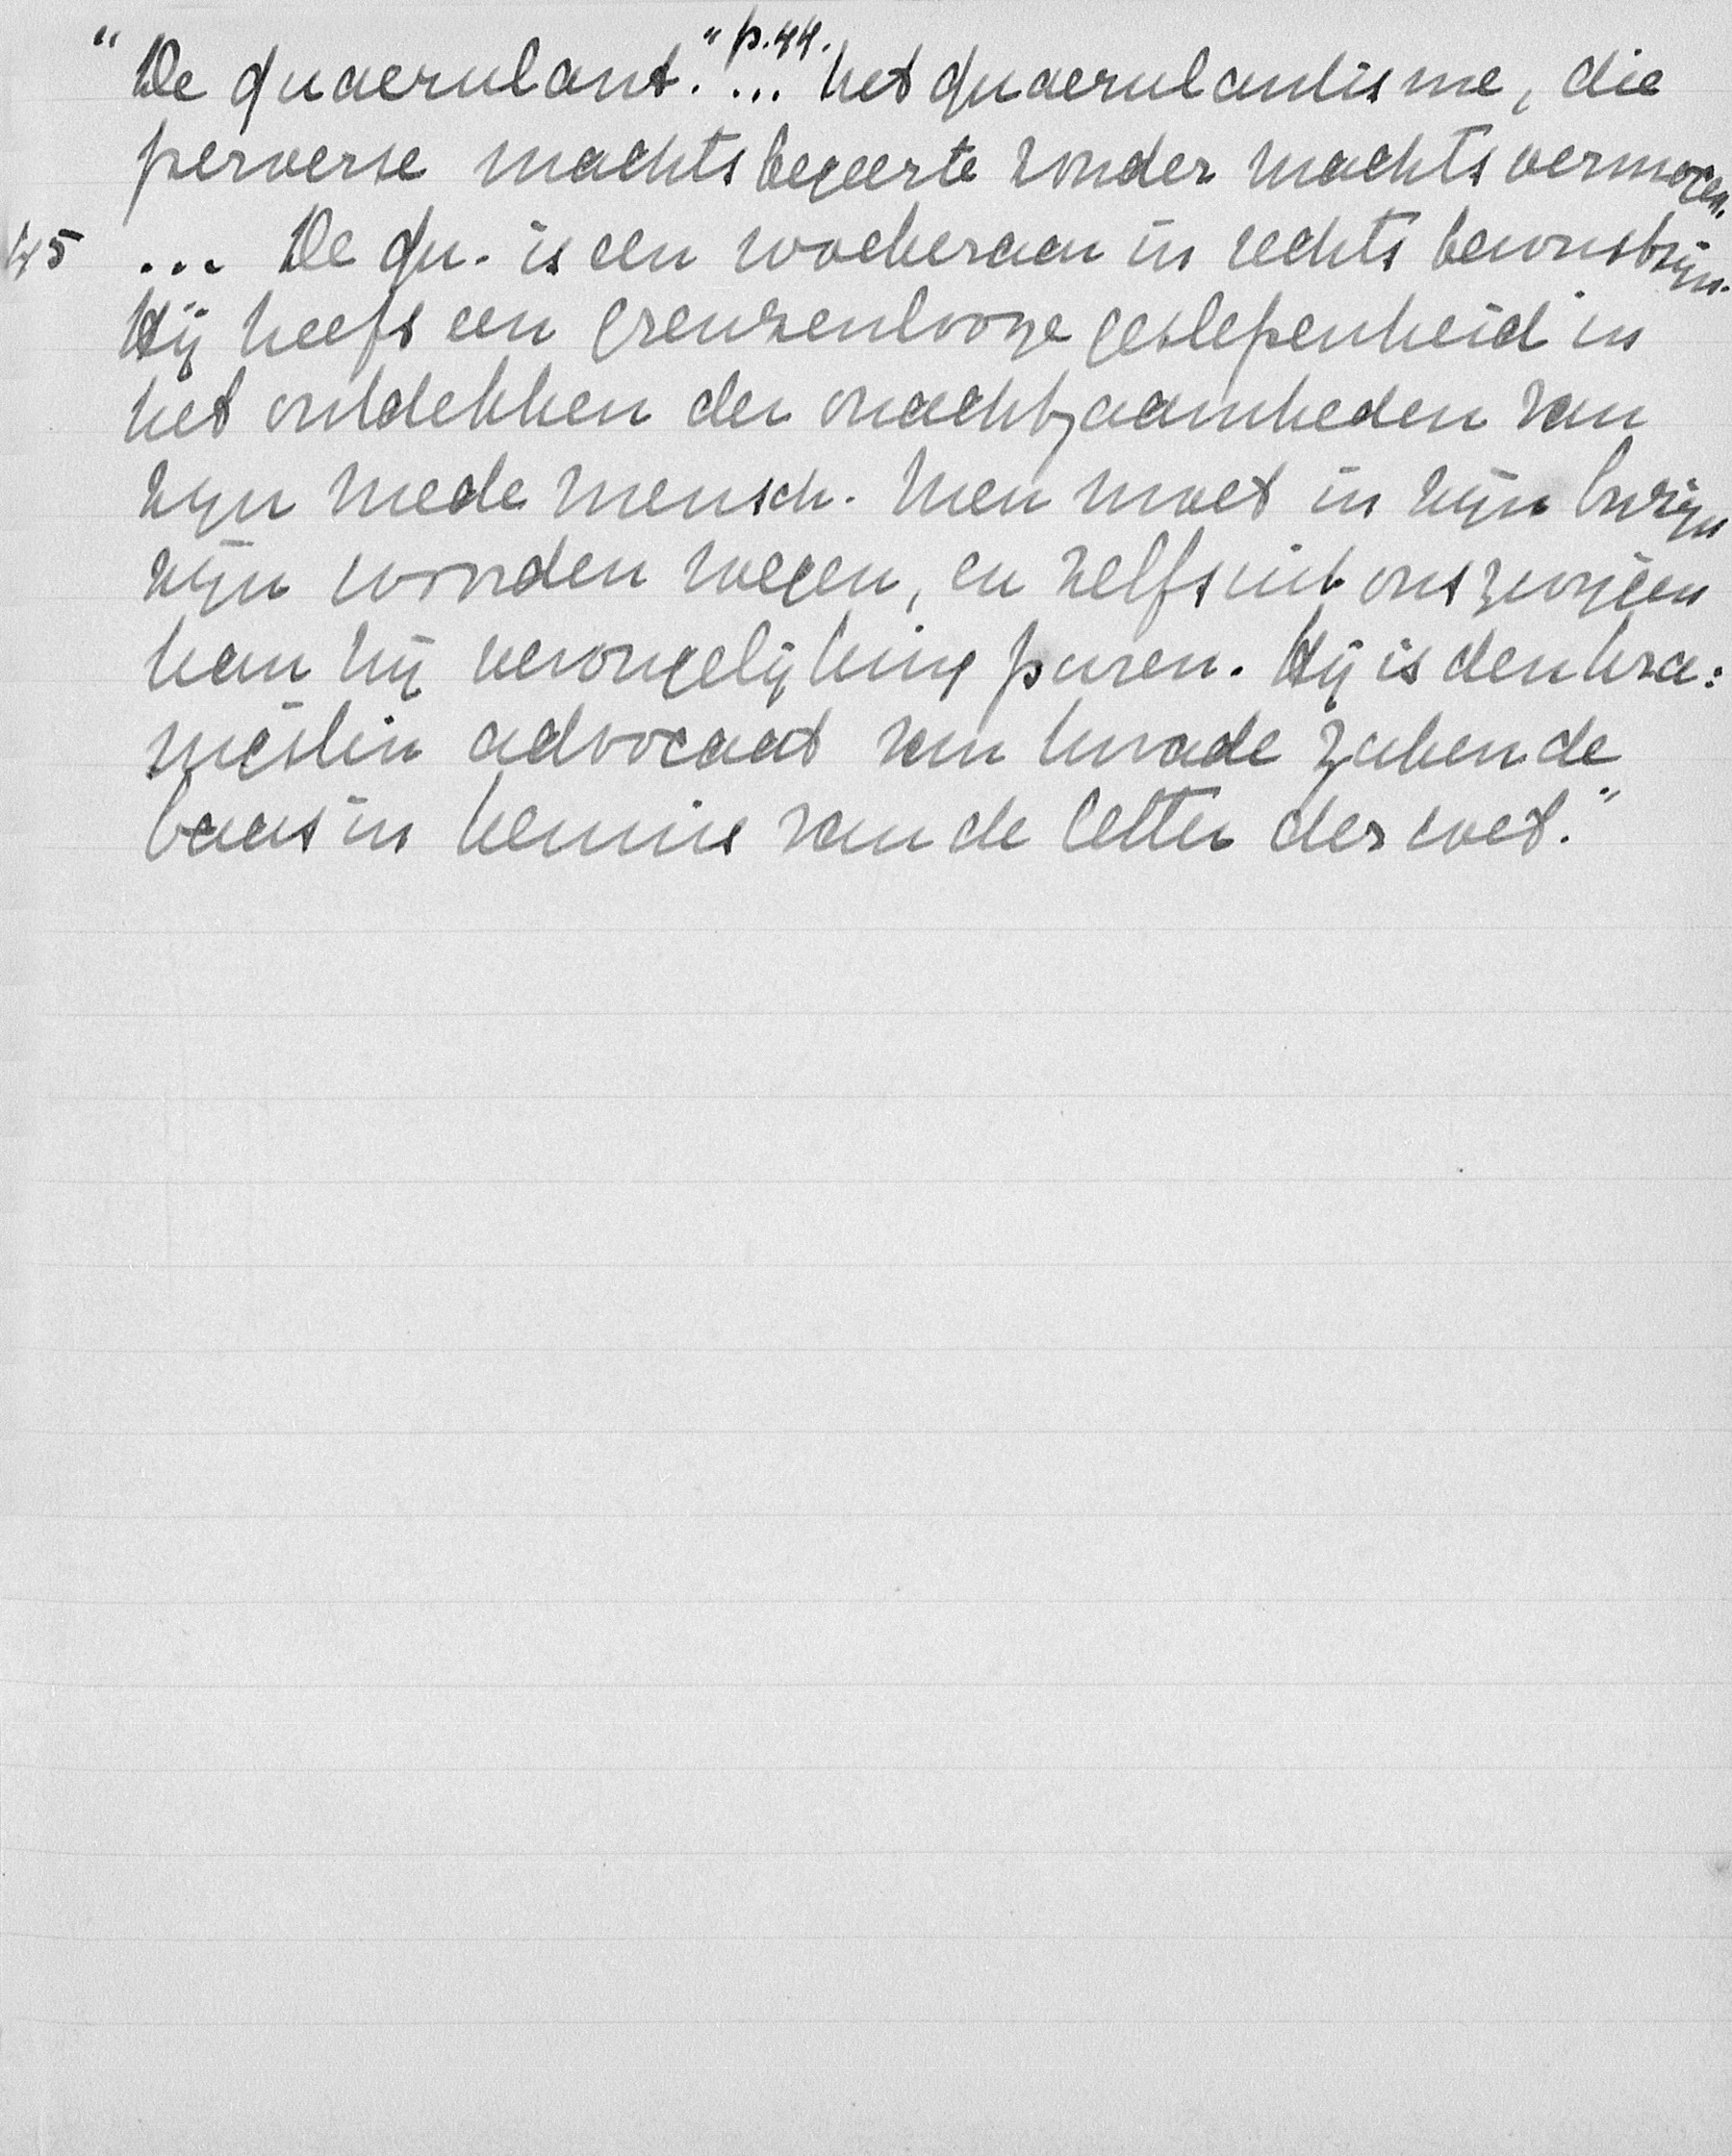 "De quaerulant." p.44. ... "het quaerulantisme, die
perverse machtsbegeerte zonder machtsvermogen.
45 ... De qu. is een woekeraar in rechtsbewustzijn.
Hij heeft een grenzenlooze geslepenheid in
het ontdekken der onachtzaamheden van
zijn medemensch. Men moet in zijn bijzijn
zijn woorden wegen, en zelfs uit ons zwijgen
kan hij verongelijking puren. Hij is den
advocaat van kwade zaken de
baas in kennis van de letter der wet."